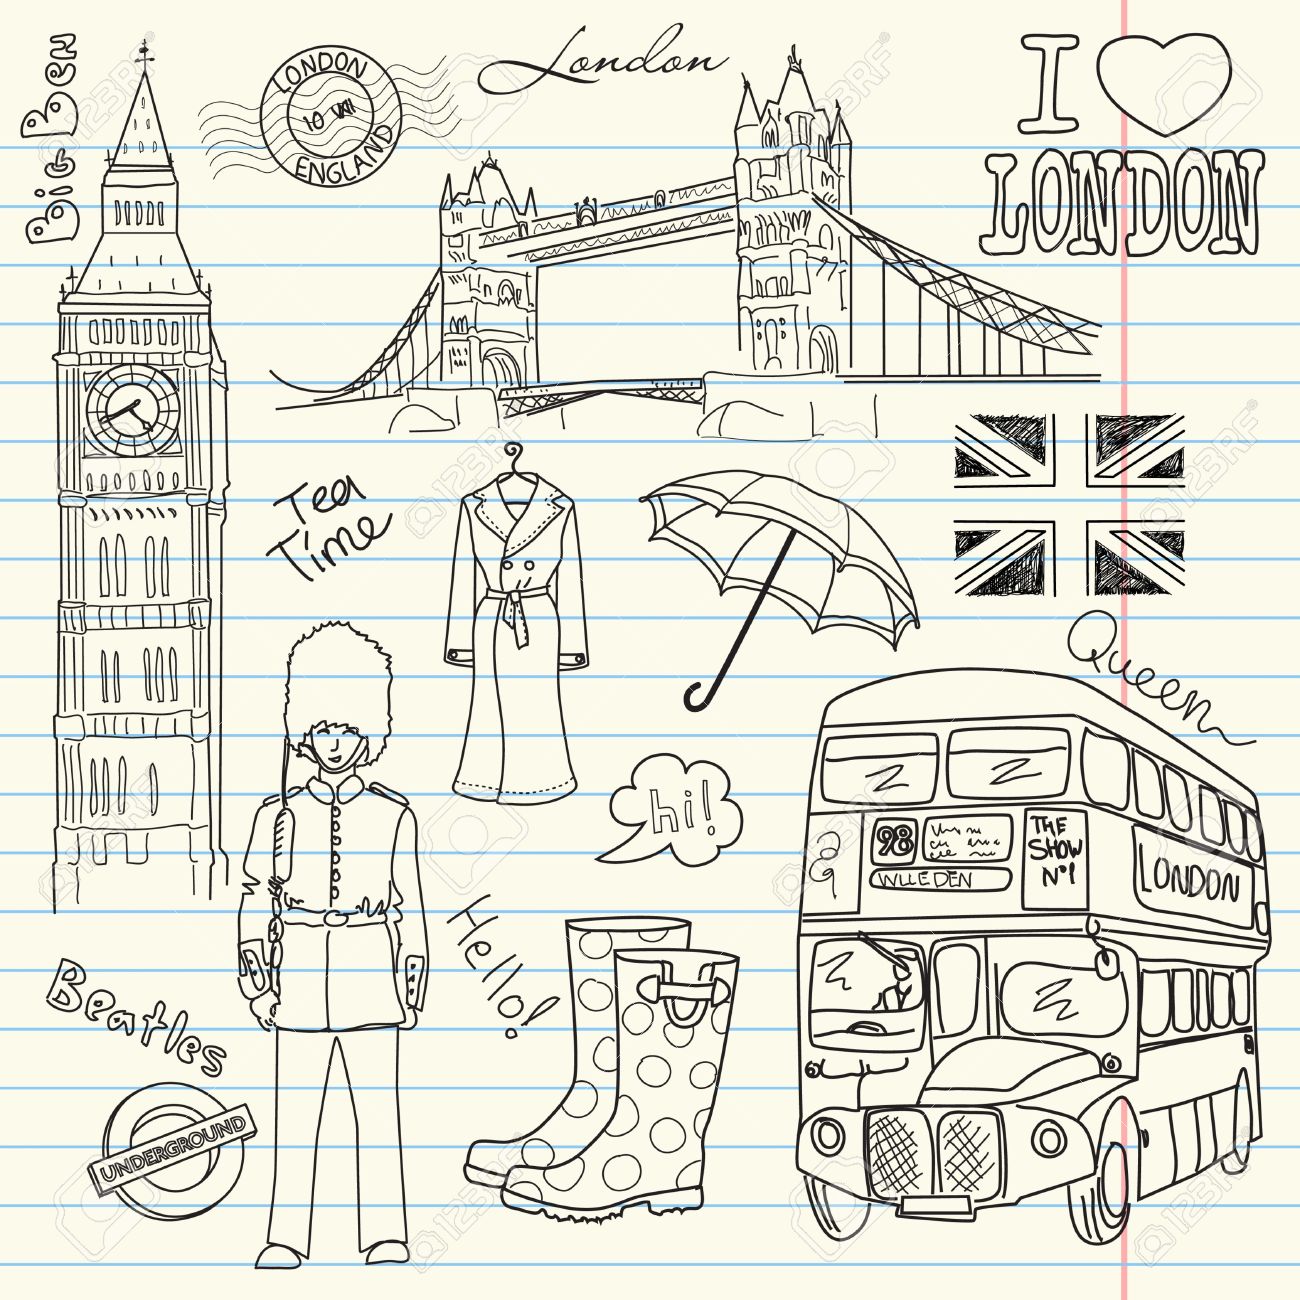 Big Ben
LONDON
10 VIII
ENGLAND
London
I
LONDON
Tea
Time
Queen
hi!
98
THE
SHOW
Nº1
WLLEDEN
LONDON
Hello!
Beatles
UNDERGROUND
123RF